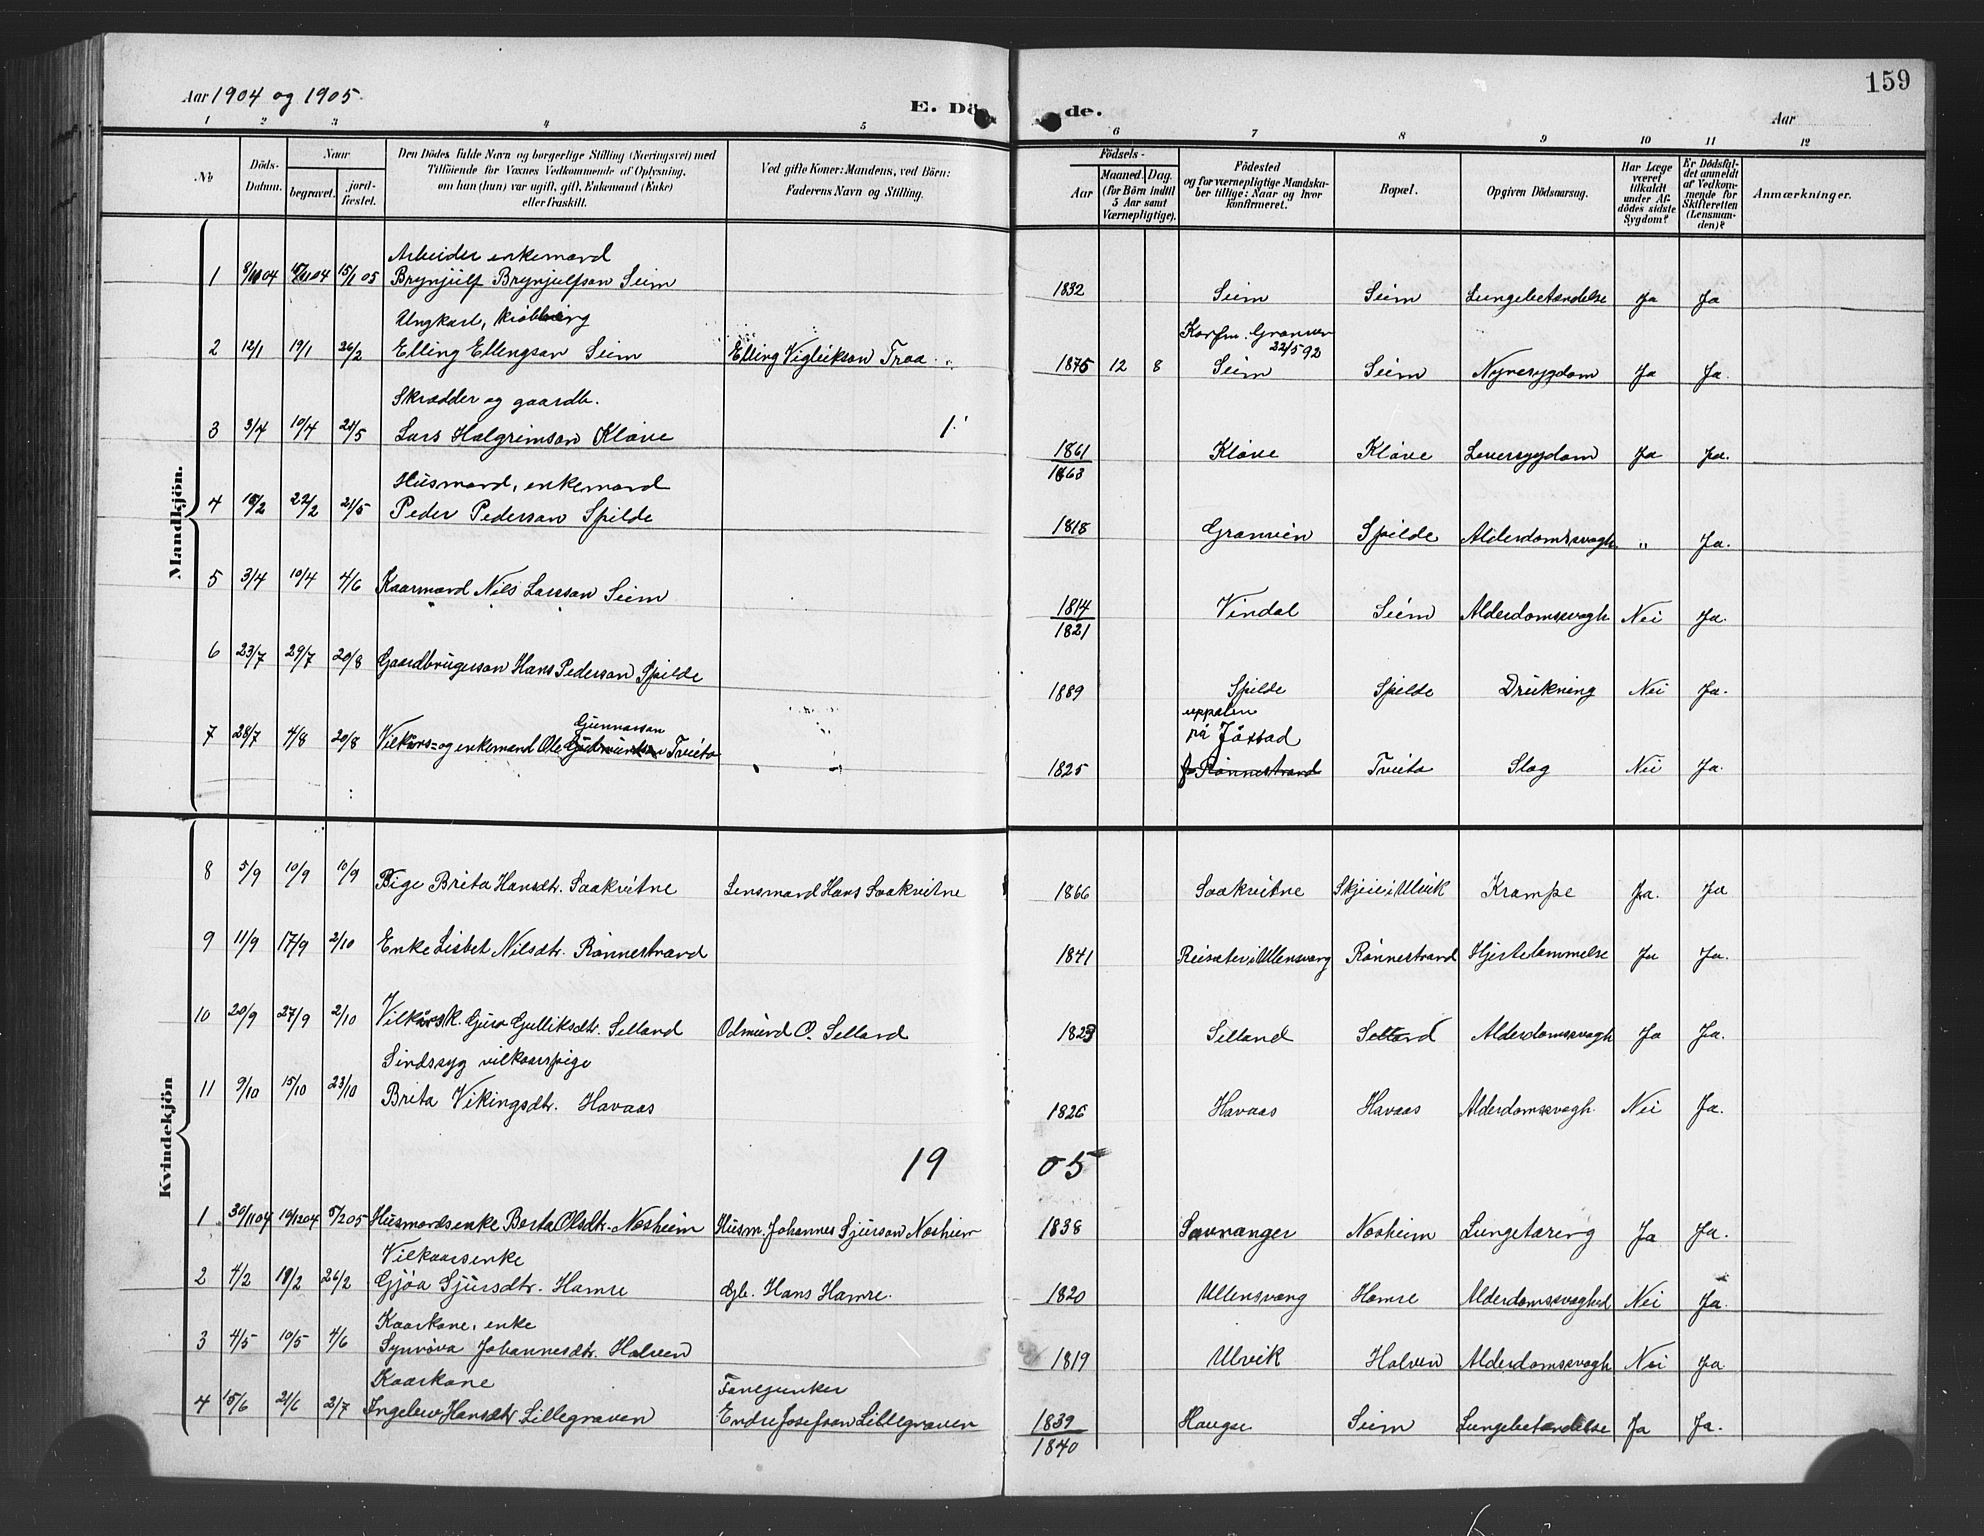 Aar 1904 og 1905.
E. Dö de.
Aar
159
1 2 3 4 5 6 7 8 9 10 11 12
No
Döds-Datum.
Naar
begravet.
jord-fæstet.
Den Dödes fulde Navn og borgerlige Stilling (Næringsvei) med
Tilföiende for Voxnes Vedkommende af Oplysning,
om han (hun) var ugift, gift, Enkemand (Enke)
eller fraskilt.
Ved gifte Koner: Mandens, ved Börn:
Faderens Navn og Stilling.
Födsels-
Aar
Maaned. Dag.
(for Börn indtil
5 Aar samt
Værnepligtige).
Födested
og for værnepligtige Mandska-
ber tillige: Naar og hvor
konfirmeret.
Bopæl.
Opgiven Dödsaarsag.
Har Læge
været
tilkaldt
under Af-
dödes sidste
Sygdom?
Er Dödsfal-
det anmeldt
af Vedkom-
mende for
Skifteretten
(Lensman-
den)?
Anmærkninger.
Mandkjön.
Arbeider enkemand
1 15/1 05 Brynjulf Brynjulfson Seim 1832 Seim Seim Lungebetændelse Ja Ja
Ungkarl,
Konfm. Granvin
22/5 92
2 12/1 19/1 26/2 Elling Ellingson Seim Elling Vigleikson Traa 1875 12 8 Seim Seim Nyresygdom Ja Ja.
Skrædder og gaardb.
3 3/4 10/4 21/5 Lars Halgrimson Kløve 1861 Kløve Kløve Leversygdom Ja Ja.
1863
Husmand, enkemand
4 22/2 21/5 Peder Pederson Spilde 1818 Granvin Spilde Alderdomssvagh. " Ja.
5 3/4 10/4 4/6 Kaarmand Nils Larsson Seim 1814 Vindal Seim Alderdomssvagh. Nei Ja.
1821
6 23/7 29/7 20/8 Gaardbrugerson Hans Pederson Spilde 1889 Spilde Spilde Drukning Nei Ja.
Gunnarson
uppalen
på Jåstad
7 28/7 4/8 20/8 Vilkårs- og enkemand Ole Gudmundson Tveito 1825 Rønnestrand Tveito Slag Nei Ja.
Kvindekjön
8 5/9 10/9 10/9 Pige Brita Hansdtr. Saakvitne Lensmand Hans Saakvitne 1866 Saakvitne Skjeie i Ulvik Krampe Ja. Ja
9 11/9 17/9 2/10 Enke Lisbet Nilsdtr. Rønnestrand 1841 Reisæter i Ullensvang Rønnestrand Hjertelammelse Ja Ja.
10 20/9 27/9 2/10 Vilkårsk. Guro Gulliksdtr. Selland Odmund O. Selland 1823 Selland Selland Alderdomssvagh Ja Ja.
Sindssyg vilkaarspige
11 9/10 15/10 23/10 Brita Vikingsdtr. Havaas 1826 Havaas Havaas Alderdomssvagh. Nei Ja.
19 05
1 30/11 04 10/12 04 5/2 05 Husmandsenke Berta Olsdtr. Nesheim Husm. Johannes Sjurson Nesheim 1838 Nesheim Lungetæring Ja Ja.
Vilkaarsenke
2 4/2 18/2 26/2 Gjøa Sjursdtr. Hamre Gb. Hans Hamre. 1820 Ullensvang Hamre Alderdomssvaghed Nei Ja.
Kaarkone, enke
3 4/5 10/5 4/6 Synnøva Johannesdtr. Halven 1819 Ulvik Halven Alderdomssvagh Nei Ja
Kaarkone Fanejunker
4 15/6 21/6 2/7 Ingelev Hansdtr Lillegraven Endre Josefson Lillegraven 1839 Hauge Seim Lungebetændelse Ja Ja.
1840